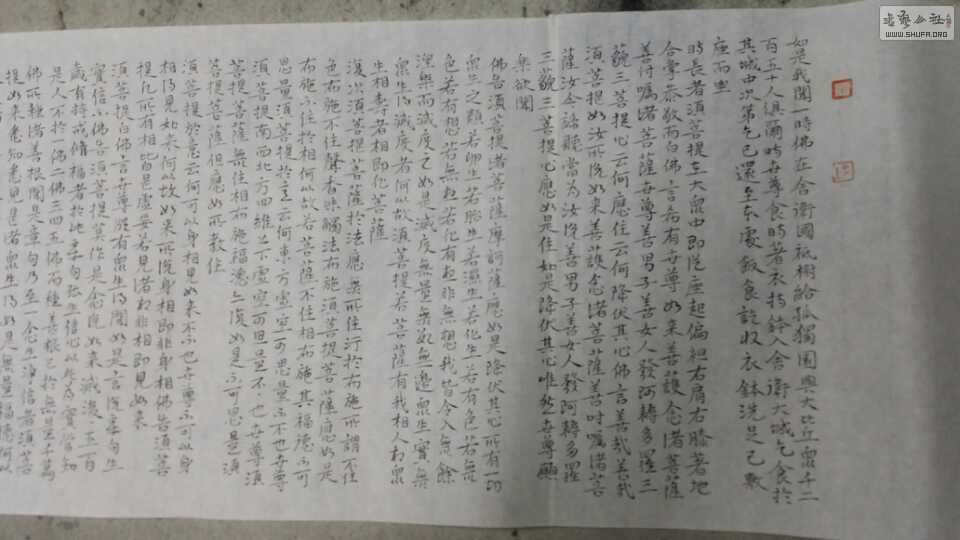 如是我聞一時佛在舍衛國祇樹給孤獨園與大比丘眾千二
百五十人俱爾時世尊食時著衣持鉢入舍衛大城乞食於
其城中次第乞已還至本處飯食訖收衣鉢洗足已敷
座而坐
時長者須菩提在大眾中即從座起偏袒右肩右膝著地
合掌恭敬而白佛言希有世尊如來善護念諸菩薩
善付囑諸菩薩世尊善男子善女人發阿耨多羅三
藐三菩提心云何應住云何降伏其心佛言善哉善哉
須菩提如汝所說如來善護念諸菩薩善付囑諸菩
薩汝今諦聽當為汝說善男子善女人發阿耨多羅
三藐三菩提心應如是住如是降伏其心唯然世尊願
樂欲聞
佛告須菩提諸菩薩摩訶薩應如是降伏其心所有一切
眾生之類若卵生若胎生若濕生若化生若有色若無
色若有想若無想若非有想非無想我皆令入無餘
涅槃而滅度之如是滅度無量無數無邊眾生實無
眾生得滅度者何以故須菩提若菩薩有我相人相眾
生相壽者相即非菩薩
復次須菩提菩薩於法應無所住行於布施所謂不住
色布施不住聲香味觸法布施須菩提菩薩應如是
布施不住於相何以故若菩薩不住相布施其福德不可
思量須菩提於意云何東方虛空可思量不不也世尊
須菩提南西北方四維上下虛空可思量不不也世尊須
菩提菩薩無住相布施福德亦復如是不可思量須
菩提菩薩但應如所教住
須菩提於意云何可以身相見如來不不也世尊不可以身
相得見如來何以故如來所說身相即非身相佛告須菩
提凡所有相皆是虛妄若見諸相非相即見如來
須菩提白佛言世尊頗有眾生得聞如是言說章句生
實信不佛告須菩提莫作是念如來滅後五百
歲有持戒修福者於此章句能生信心以此為實當知
是人不於一佛二佛三四五佛而種善根已於無量千萬
佛所種諸善根聞是章句乃至一念生淨信者須菩
提如來悉知悉見是諸眾生得如是無量福德何以
書藝公社
WWW.SHUFA.ORG